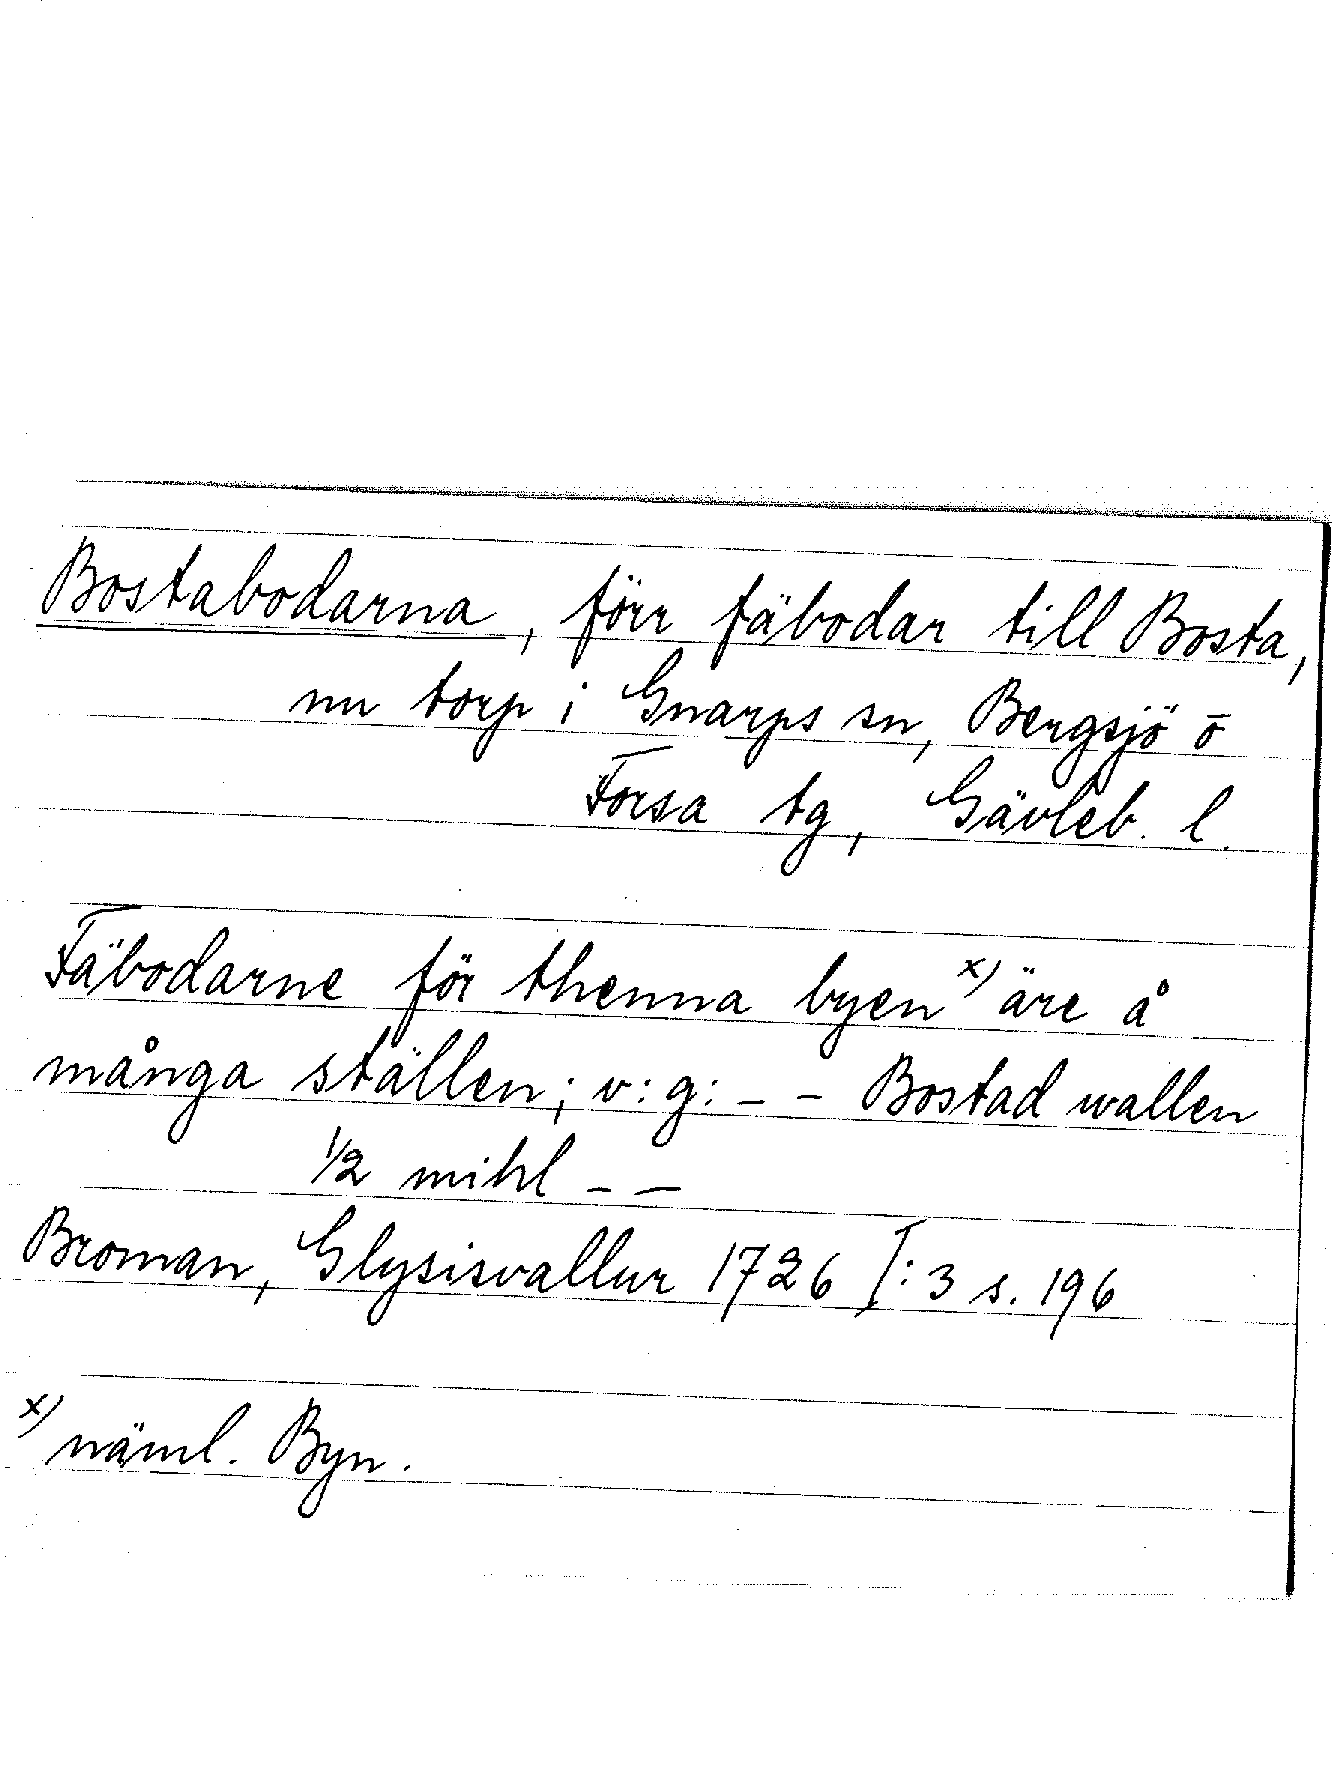 Bostabodarna, förr fäbodar till Bosta,
nu torp i Gnarps sn, Bergsjö o̅
Forsa tg, Gävleb. l.
Fäbodarne för thenna byen x) äre å
många ställen; v: g: – – Bostad wallen
1/2 mihl – –
Broman, Glysisvallur 1726 I: 3 s. 196
x) näml. Byn.